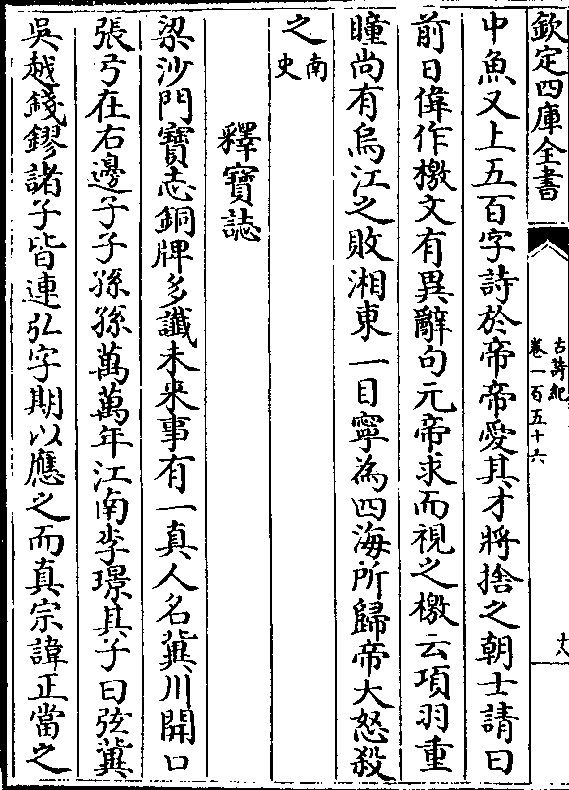 欽定四庫全書
古詩紀
卷一百五十六
十八
中魚又上五百字詩於帝帝愛其才將捨之朝士請曰
前日偉作檄文有異辭句元帝求而視之檄云項羽重
瞳尚有烏江之敗湘東一目寧為四海所歸帝大怒殺
之南史
釋寶誌
梁沙門寶志銅牌多讖未来事有一真人名兾川開口
張弓在右邊子子孫孫萬萬年江南李璟其子曰弦兾
吳越錢鏐諸子皆連弘字期以應之而真宗諱正當之